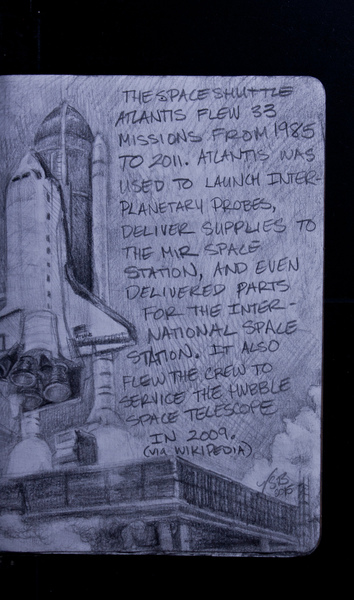 THE SPACE SHUTTLE
ATLANTIS FLEW 33
MISSIONS FROM 1985
TO 2011. ATLANTIS WAS
USED TO LAUNCH INTER-
PLANETARY PROBES,
DELIVER SUPPLIES TO
THE MIR SPACE
STATION, AND EVEN
DELIVERED PARTS
FOR THE INTER-
NATIONAL SPACE
STATION. IT ALSO
FLEW THE CREW TO
SERVICE THE HUBBLE
SPACE TELESCOPE
IN 2009.
(VIA WIKIPEDIA)